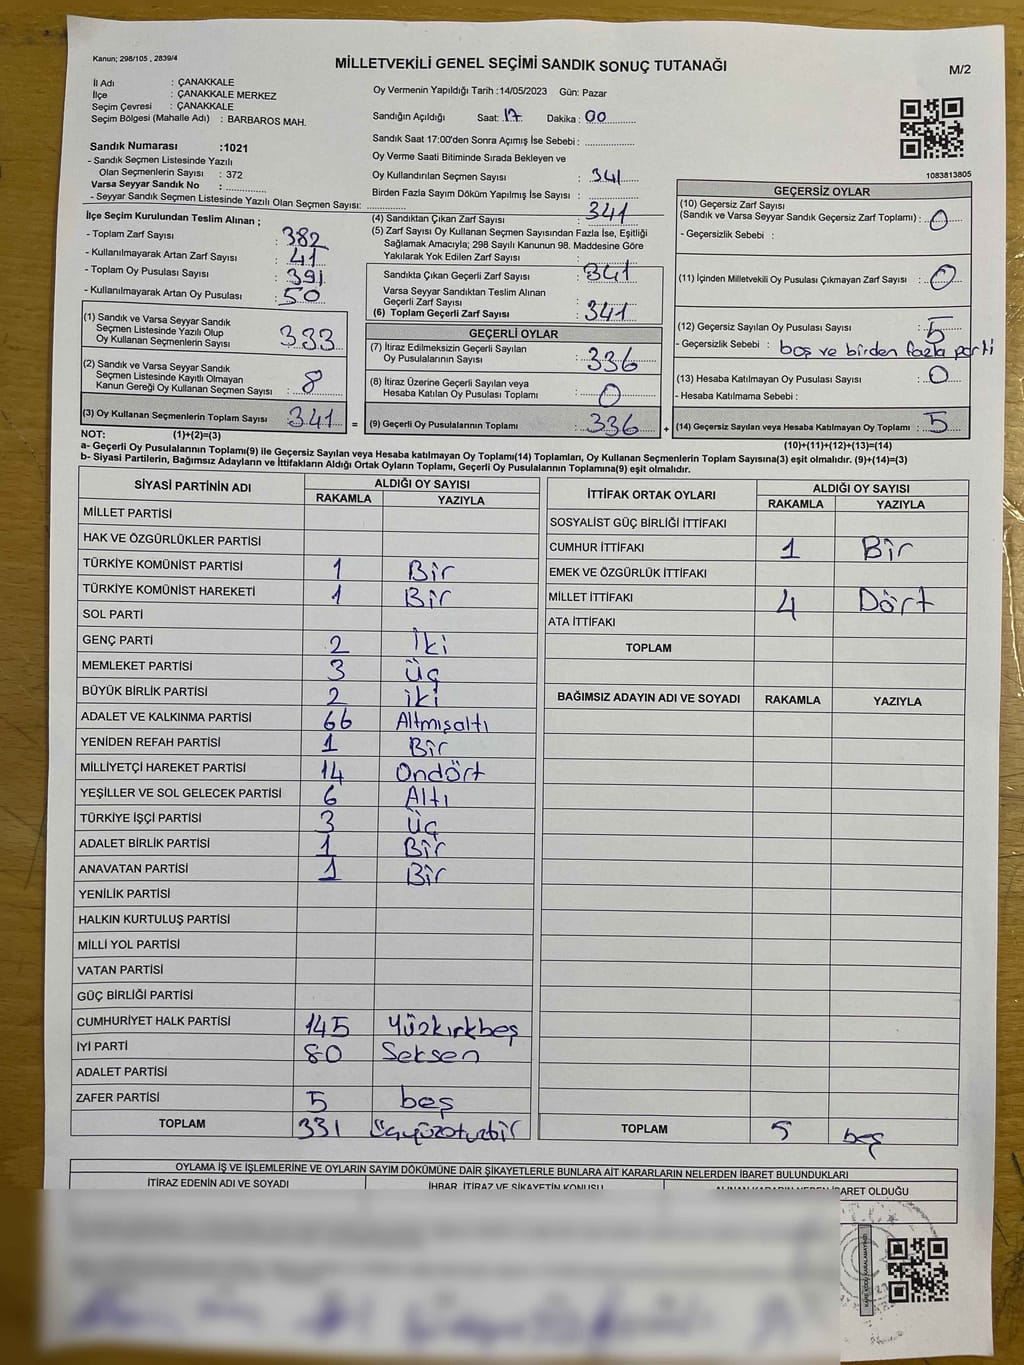 Kanun; 298/105 , 2839/4
MİLLETVEKİLİ GENEL SEÇİMİ SANDIK SONUÇ TUTANAĞI
M/2
İl Adı : ÇANAKKALE
İlçe : ÇANAKKALE MERKEZ
Seçim Çevresi : ÇANAKKALE
Seçim Bölgesi (Mahalle Adı) : BARBAROS MAH.
Oy Vermenin Yapıldığı Tarih :14/05/2023 Gün: Pazar
Sandığın Açıldığı Saat: 17 Dakika : 00
Sandık Saat 17:00'den Sonra Açımış İse Sebebi :
Oy Verme Saati Bitiminde Sırada Bekleyen ve
Oy Kullandırılan Seçmen Sayısı : 341
Birden Fazla Sayım Döküm Yapılmış İse Sayısı :
1083813805
Sandık Numarası :1021
- Sandık Seçmen Listesinde Yazılı
Olan Seçmenlerin Sayısı : 372
Varsa Seyyar Sandık No :
- Seyyar Sandık Seçmen Listesinde Yazılı Olan Seçmen Sayısı:
İlçe Seçim Kurulundan Teslim Alınan ;
- Toplam Zarf Sayısı : 382
- Kullanılmayarak Artan Zarf Sayısı : 41
- Toplam Oy Pusulası Sayısı : 391
- Kullanılmayarak Artan Oy Pusulası : 50
(1) Sandık ve Varsa Seyyar Sandık
Seçmen Listesinde Yazılı Olup
Oy Kullanan Seçmenlerin Sayısı : 333
(2) Sandık ve Varsa Seyyar Sandık
Seçmen Listesinde Kayıtlı Olmayan
Kanun Gereği Oy Kullanan Seçmen Sayısı : 8
(3) Oy Kullanan Seçmenlerin Toplam Sayısı : 341 =
(4) Sandıktan Çıkan Zarf Sayısı : 341
(5) Zarf Sayısı Oy Kullanan Seçmen Sayısından Fazla İse, Eşitliği
Sağlamak Amacıyla; 298 Sayılı Kanunun 98. Maddesine Göre
Yakılarak Yok Edilen Zarf Sayısı :
Sandıkta Çıkan Geçerli Zarf Sayısı : 341
Varsa Seyyar Sandıktan Teslim Alınan
Geçerli Zarf Sayısı :
(6) Toplam Geçerli Zarf Sayısı : 341
GEÇERLİ OYLAR
(7) İtiraz Edilmeksizin Geçerli Sayılan
Oy Pusulalarının Sayısı : 336
(8) İtiraz Üzerine Geçerli Sayılan veya
Hesaba Katılan Oy Pusulası Toplamı : 0
(9) Geçerli Oy Pusulalarının Toplamı : 336 +
GEÇERSİZ OYLAR
(10) Geçersiz Zarf Sayısı
(Sandık ve Varsa Seyyar Sandık Geçersiz Zarf Toplamı) : 0
- Geçersizlik Sebebi :
(11) İçinden Milletvekili Oy Pusulası Çıkmayan Zarf Sayısı : 0
(12) Geçersiz Sayılan Oy Pusulası Sayısı : 5
- Geçersizlik Sebebi : boş ve birden fazla parti
(13) Hesaba Katılmayan Oy Pusulası Sayısı : 0
- Hesaba Katılmama Sebebi :
(14) Geçersiz Sayılan veya Hesaba Katılmayan Oy Toplamı : 5
NOT: (1)+(2)=(3) (10)+(11)+(12)+(13)=(14)
a- Geçerli Oy Pusulalarının Toplamı(9) ile Geçersiz Sayılan veya Hesaba katılmayan Oy Toplamı(14) Toplamları, Oy Kullanan Seçmenlerin Toplam Sayısına(3) eşit olmalıdır. (9)+(14)=(3)
b- Siyasi Partilerin, Bağımsız Adayların ve İttifakların Aldığı Ortak Oyların Toplamı, Geçerli Oy Pusulalarının Toplamına(9) eşit olmalıdır.
SİYASİ PARTİNİN ADI ALDIĞI OY SAYISI
RAKAMLA YAZIYLA
MİLLET PARTİSİ
HAK VE ÖZGÜRLÜKLER PARTİSİ
TÜRKİYE KOMÜNİST PARTİSİ 1 Bir
TÜRKİYE KOMÜNİST HAREKETİ 1 Bir
SOL PARTİ
GENÇ PARTİ 2 İki
MEMLEKET PARTİSİ 3 Üç
BÜYÜK BİRLİK PARTİSİ 2 iki
ADALET VE KALKINMA PARTİSİ 66 Altmışaltı
YENİDEN REFAH PARTİSİ 1 Bir
MİLLİYETÇİ HAREKET PARTİSİ 14 Ondört
YEŞİLLER VE SOL GELECEK PARTİSİ 6 Altı
TÜRKİYE İŞÇİ PARTİSİ 3 Üç
ADALET BİRLİK PARTİSİ 1 Bir
ANAVATAN PARTİSİ 1 Bir
YENİLİK PARTİSİ
HALKIN KURTULUŞ PARTİSİ
MİLLİ YOL PARTİSİ
VATAN PARTİSİ
GÜÇ BİRLİĞİ PARTİSİ
CUMHURİYET HALK PARTİSİ 145 Yüzkırkbeş
İYİ PARTİ 80 Seksen
ADALET PARTİSİ
ZAFER PARTİSİ 5 beş
TOPLAM 331 üçyüzotuzbir
İTTİFAK ORTAK OYLARI ALDIĞI OY SAYISI
RAKAMLA YAZIYLA
SOSYALİST GÜÇ BİRLİĞİ İTTİFAKI
CUMHUR İTTİFAKI 1 Bir
EMEK VE ÖZGÜRLÜK İTTİFAKI
MİLLET İTTİFAKI 4 Dört
ATA İTTİFAKI
TOPLAM
BAĞIMSIZ ADAYIN ADI VE SOYADI RAKAMLA YAZIYLA
TOPLAM 5 beş
OYLAMA İŞ VE İŞLEMLERİNE VE OYLARIN SAYIM DÖKÜMÜNE DAİR ŞİKAYETLERLE BUNLARA AİT KARARLARIN NELERDEN İBARET BULUNDUKLARI
İTİRAZ EDENİN ADI VE SOYADI İHBAR, İTİRAZ VE ŞİKAYETİN KONUSU ALINAN KARARIN NEDEN İBARET OLDUĞU